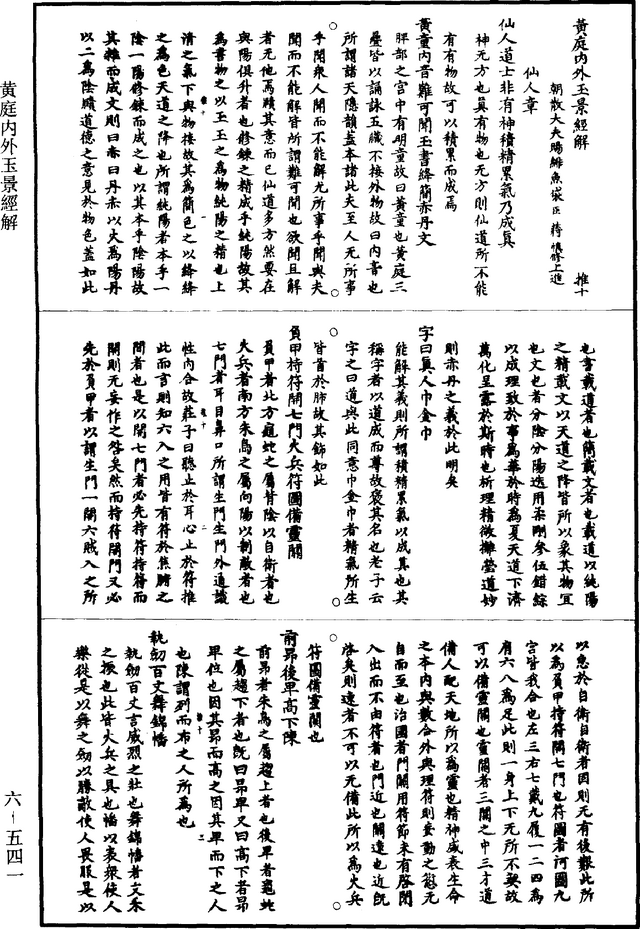 黃庭內外玉景經解
推十
朝散大夫賜緋魚袋臣蔣慎修上進
仙人章
仙人道士非有神積精累氣乃成眞
神无方也眞有物也无方則仙道所不能
有有物故可以積累而成焉
黃童內音難可聞玉書絳簡赤丹文
脾部之宮中有明童故曰黃童也黃庭三
疊皆以誦詠五臟不接外物故曰內音也
所謂諸天隱韻蓋本諸此夫至人无所事
乎聞衆人聞而不能解尢所事乎聞與夫
聞而不能解皆所謂難可聞也欲聞且解
者无他焉賾其意而已仙道多方然要在
與陽俱升者也修鍊之精成乎純陽故其
爲書物之以玉玉之爲物純陽之精也上
清之氣下與物接故其爲簡色之以絳絳
之爲色天道之降也所謂純陽者本乎一
陰一陽修鍊而成之也以其本乎陰陽故
其雜而成文則曰赤曰丹赤以火爲陽丹
以二爲陰賾道德之意見於物色蓋如此
也書載道者也簡載文者也載道以純陽
之精載文以天道之降皆所以象其物宜
也文也者分陰分陽迭用柔剛參伍錯綜
以成理致於事爲華於時爲夏天道下濟
萬化呈露於斯時也析理精微摛瑩道妙
則赤丹之義於此明矣
字曰眞人巾金巾
能解其義則所謂積精累氣以成眞也其
稱字者以道成而尊故褒其名也老子云
字之曰道與此同意巾金巾者精氣所生
皆首於肺故其飾如此
負甲持符開七門火兵符圖備靈關
負甲者北方龜蛇之屬背陰以自衛者也
火兵者南方朱鳥之屬向陽以制敵者也
七門者耳目鼻口所謂生門生門外通識
性內合故莊子曰聽止於耳心止於符推
此而言則知六入之用皆有符於焦腑之
間者也是以開七門者必先持符持符而
開則无妄作之咎矣然而持符開門又必
先於負甲者以謂生門一開六賊入之所
以急於自衛自衛者固則元有後艱此所
以爲負甲持符開七門也符圖者河圖九
宮皆我合也左三右七戴九履一二四爲
肩六八爲足此則一身上下无所不契故
可以備靈關也靈關者三關之中三才道
備人配天地所以爲靈也精神威衰生命
之本內與數合外與理符則妄動之愆无
自而至也治國者門關用符節未有啓閉
入出而不由符者也門近也關遠也近旣
啓矣則遠者不可以无備此所以爲火兵
符圖備靈關也
前昂後卑高下陳
前昂者朱鳥之屬趨上者也後卑者龜蛇
之屬趨下者也旣曰昂卑又曰高下者昂
卑位也因其昂而高之因其卑而下之人
也陳謂列而布之人所爲也
執劒百丈舞錦幡
執劒百丈言威烈之壯也舞錦幡者文禾
之振也此皆火兵之具也幡以表衆使人
樂從是以舞之劒以勝敵使人畏服是以
黃庭內外玉景經解
六–五四一